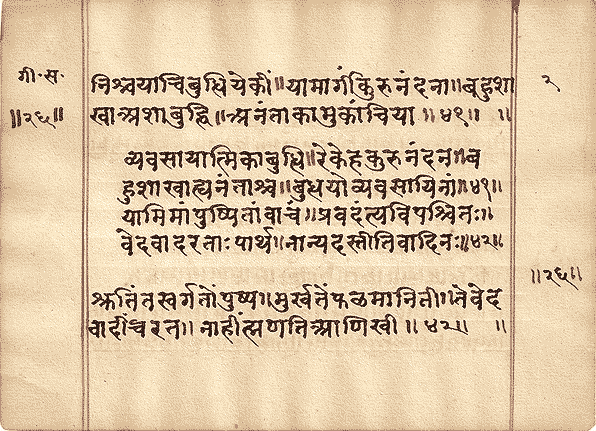 गी·स·
निश्चयाचिबुद्धियेकीं॥यामार्गंकुरुनंदना॥बहुशा
२
॥२६॥
खाअशाबुद्धि॥अनंताकामुकांचिया॥४१॥ ॥
व्यवसायात्मिकाबुद्धि॥रेकेहकुरुनंदन॥ब
हुशाखाह्यनंताश्च॥बुद्धयोव्यवसायिनां॥४१॥
यामिमांपुष्पितांवाचं॥प्रवदंत्यविपश्चितः॥
वेदवादरताःपार्थ॥नान्यदस्तीतिवादिनः॥४२॥
॥२६॥
श्रुतिंतस्वर्गतोंपुष्प॥मुर्खतेंफळमानिती॥जेवेद
वादींचरत॥नाहींह्मणतिआणिखी॥४२॥ ॥